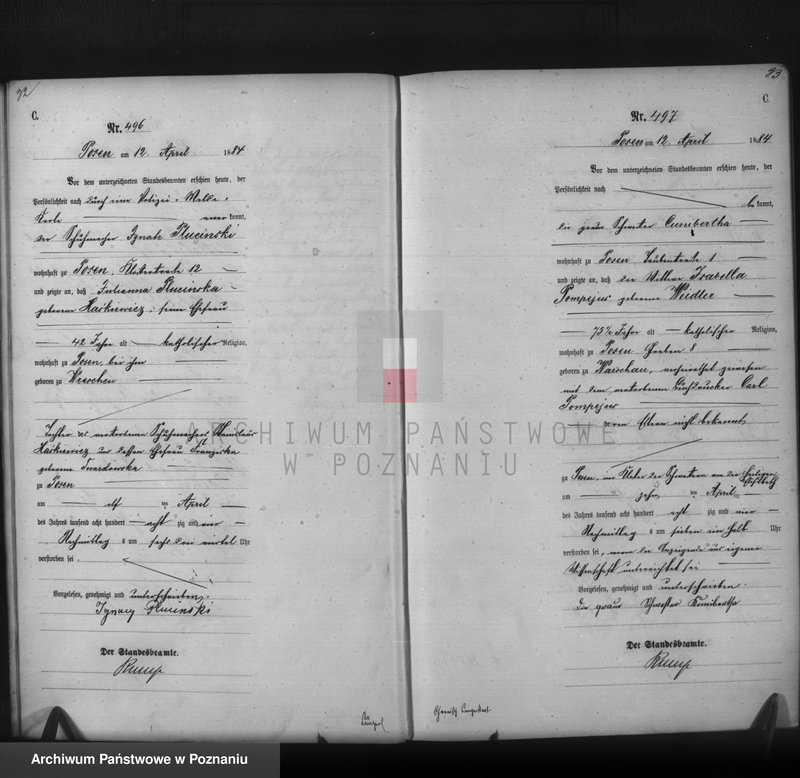 92
C.
Nr. 496
Posen am 12. April 1884
Vor dem unterzeichneten Standesbeamten erschien heute, der
Persönlichkeit nach durch eine Polizei-Melde-
kannt,
der Schuhmacher Ignatz Plucinski
wohnhaft zu Posen, Klosterstraße 12
und zeigte an, daß Julianna Plucinska
geborene Maćkiewicz, seine Ehefrau
42 Jahr alt katholischer Religion,
wohnhaft zu Posen, bei ihm
geboren zu Wreschen
Tochter des verstorbenen Schuhmachers Stanislaus
Maćkiewicz und dessen Ehefrau Franziska
geborene Twardowska
zu Posen
am elf ten April
des Jahres tausend acht hundert acht zig und vier
Nachmittag s um sechs drei viertel Uhr
verstorben sei.
Vorgelesen, genehmigt und unterschrieben.
Ignacy Plucinski
Der Standesbeamte.
93
C.
Nr. 497
Posen am 12 April 1884
Vor dem unterzeichneten Standesbeamten erschien heute, der
Persönlichkeit nach
be kannt,
die graue Schwester Cunibertha
wohnhaft zu Posen, 1
und zeigte an, daß die Wittwe Isabella
Pompejus geborene Weidler
73½ Jahre alt katholischer Religion,
wohnhaft zu Posen 8
geboren zu Warschau, verheirathet gewesen
mit dem verstorbenen Buchdrucker Carl
Pompejus
deren Eltern nicht bekannt,
zu Posen, im Kloster der Schwestern von der heiligen
Elisabeth
am zehn ten April
des Jahres tausend acht hundert acht zig und vier
Nachmittag s um sieben ein halb Uhr
verstorben sei, wovon die Anzeigende aus eigener
Wissenschaft unterrichtet sei
Vorgelesen, genehmigt und unterschrieben.
die graue Schwester Kunibertha
Der Standesbeamte.
ARCHIWUM PAŃSTWOWE
W POZNANIU
Archiwum Państwowe w Poznaniu